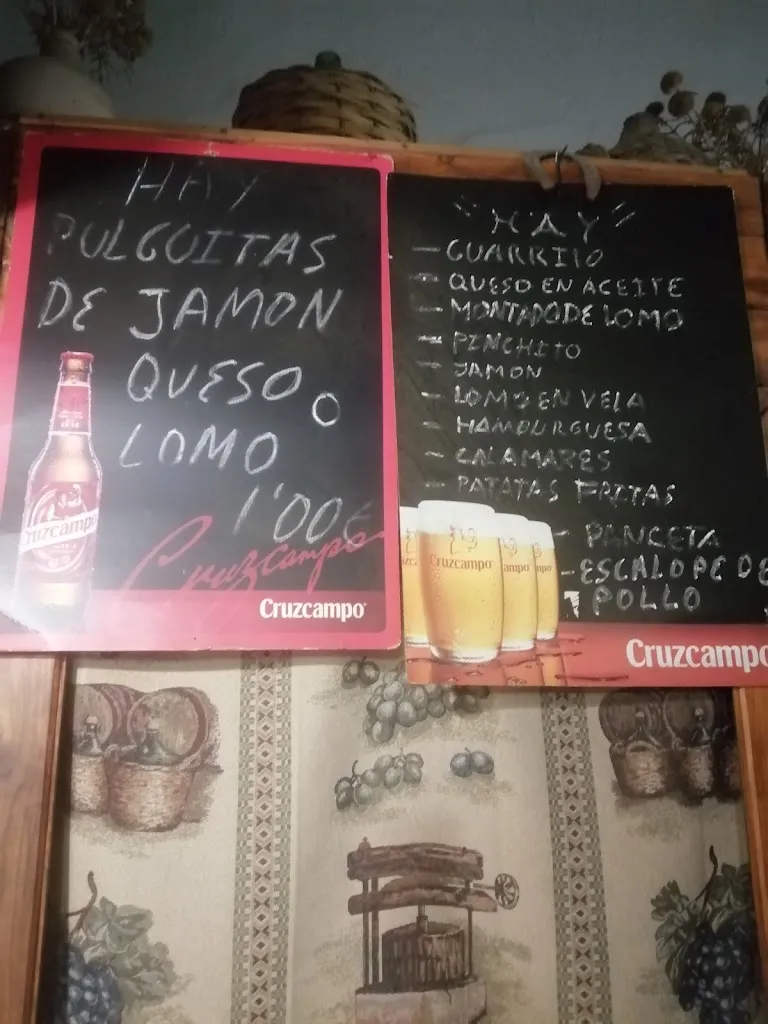 HAY
PULGUITAS
DE JAMON
QUESO O
LOMO
1'00€
Cruzcampo
Cruzcampo
Cruzcampo
"HAY"
- GUARRITO
- QUESO EN ACEITE
- MONTADO DE LOMO
- PINCHITO
- JAMON
- LOMO EN VELA
- HAMBURGUESA
- CALAMARES
- PATATAS FRITAS
- PANCETA
- ESCALOPE DE
POLLO
Cruzcampo
Cruzcampo